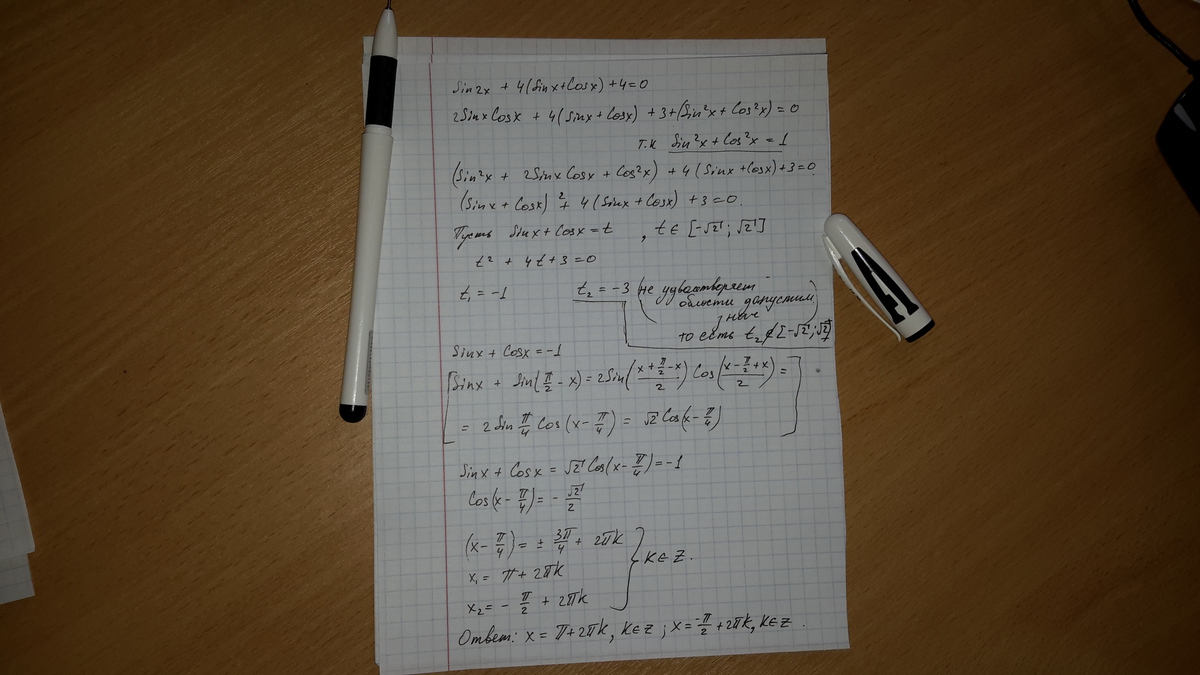 Sin2x + 4(Sinx+Cosx)+4=0
2SinxCosx + 4(Sinx+Cosx) +3+(Sin²x+Cos²x)=0
т.к Sin²x+Cos²x=1
(Sin²x + 2SinxCosx+Cos²x) +4(Sinx+Cosx)+3=0
(Sinx+Cosx)²+4(Sinx+Cosx)+3=0.
Пусть Sinx+Cosx=t , t∈[-√2;√2]
t²+4t+3=0
t₁=-1 t₂=-3 (не удволтворяет
области допустим,
знач
то есть t₂∉[-√2;√2]
Sinx+Cosx=-1
[Sinx + Sin(π/2-x)=2Sin((x+π/2-x)/2)Cos((x-π/2+x)/2)=
=2Sin π/4 Cos(x-π/4)=√2Cos(x-π/4)]
Sinx+Cosx=√2Cos(x-π/4)=-1
Cos(x-π/4)=-√2/2
(x-π/4)=±3π/4+2πk
x₁=π+2πk } k∈Z.
x₂=-π/2+2πk
Ответ: x=π+2πk, k∈Z; x=-π/2+2πk, k∈Z.
A